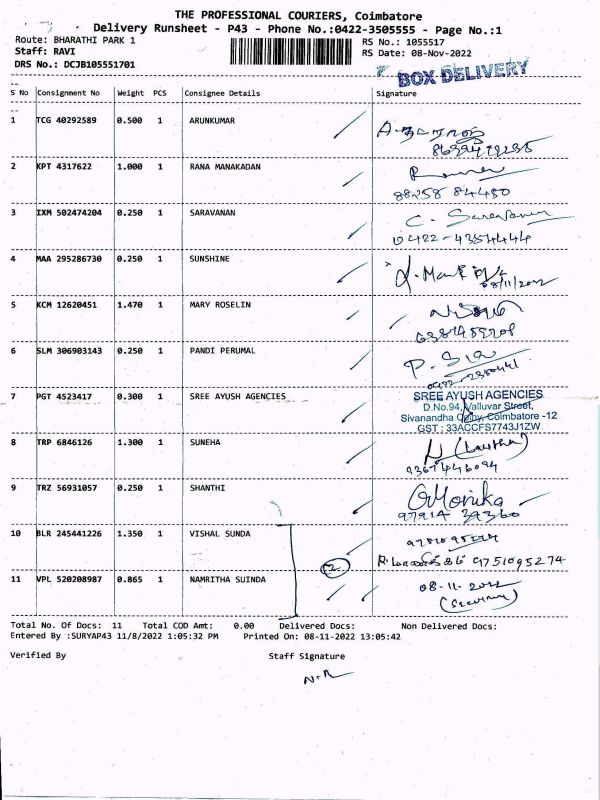 THE PROFESSIONAL COURIERS, Coimbatore
Delivery Runsheet - P43 - Phone No.:0422-3505555 - Page No.:1
Route: BHARATHI PARK 1 RS No.: 1055517
Staff: RAVI RS Date: 08-Nov-2022
DRS No.: DCJB105551701
BOX DELIVERY
S No Consignment No Weight PCS Consignee Details Signature
1 TCG 40292589 0.500 1 ARUNKUMAR
2 KPT 4317622 1.000 1 RANA MANAKADAN
88258 84480
3 IXM 502474204 0.250 1 SARAVANAN C. Saravanan
0422-4354444
4 MAA 295286730 0.250 1 SUNSHINE
08/11/2022
5 KCM 12620451 1.470 1 MARY ROSELIN
6 SLM 306903143 0.250 1 PANDI PERUMAL
7 PGT 4523417 0.300 1 SREE AYUSH AGENCIES SREE AYUSH AGENCIES
D.No.94, Valluvar Street,
Sivanandha Colony, Coimbatore -12
GST : 33ACCFS7743J1ZW
8 TRP 6846126 1.300 1 SUNEHA
9367446094
9 TRZ 56931057 0.250 1 SHANTHI Monika
97914 39360
10 BLR 245441226 1.350 1 VISHAL SUNDA
2 9751095274
11 VPL 520208987 0.865 1 NAMRITHA SUINDA 08-11-2022
(Security)
Total No. Of Docs: 11 Total COD Amt: 0.00 Delivered Docs: Non Delivered Docs:
Entered By :SURYAP43 11/8/2022 1:05:32 PM Printed On: 08-11-2022 13:05:42
Verified By Staff Signature